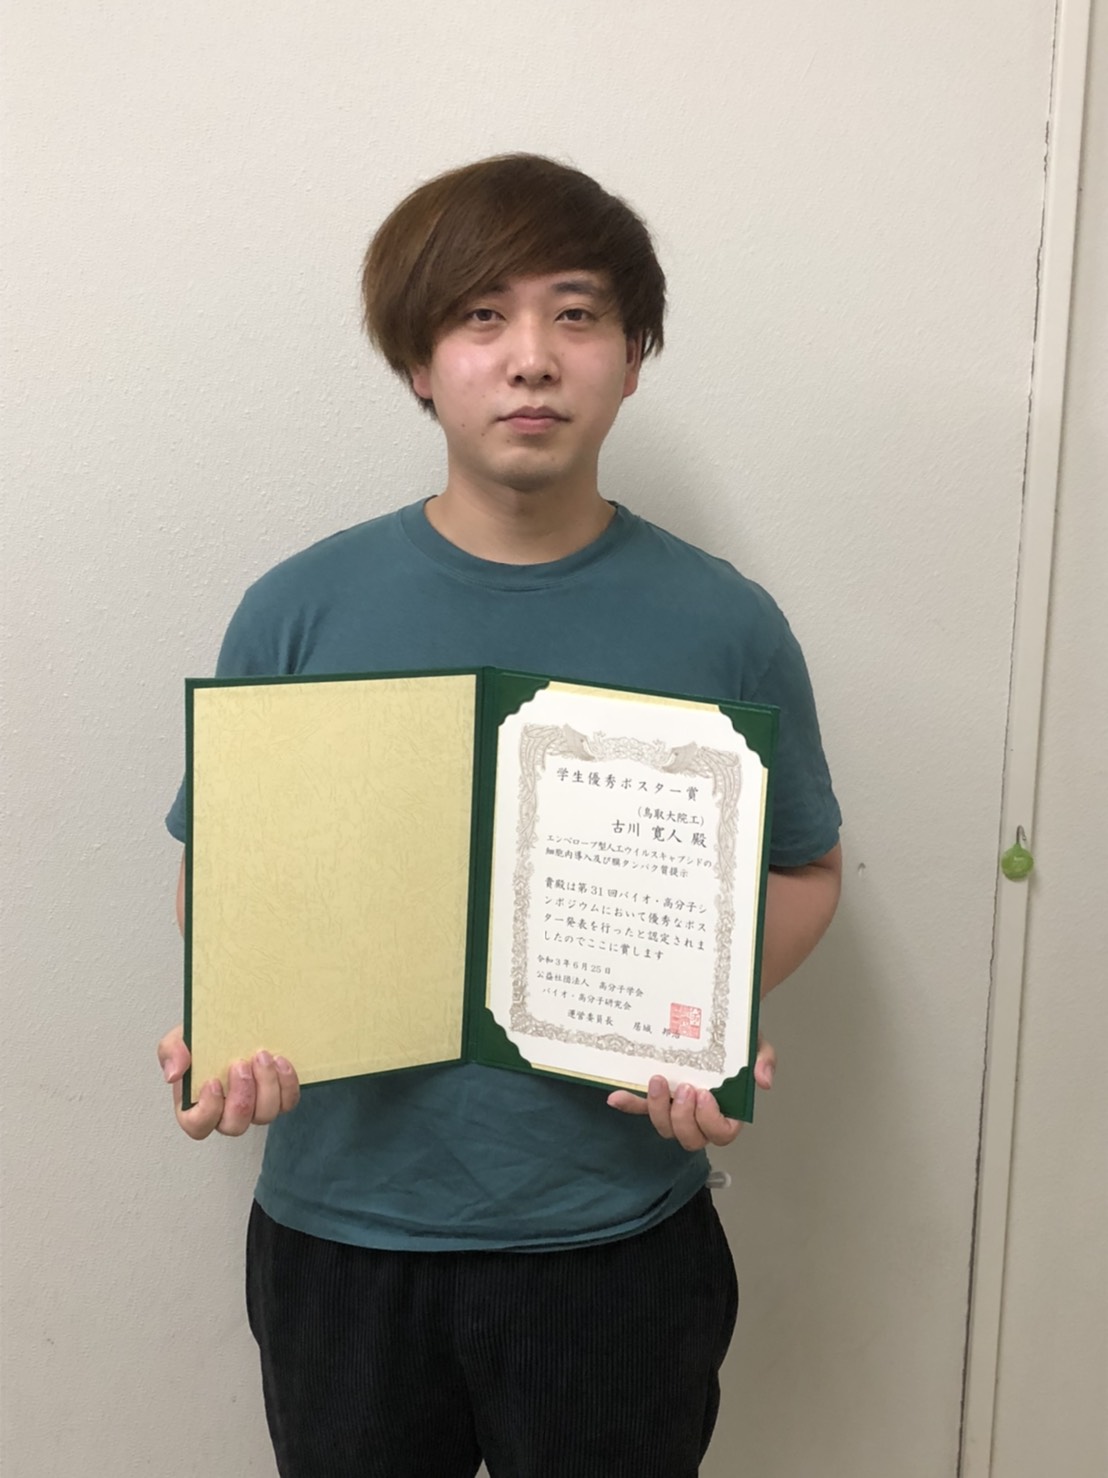 学生優秀ポスター賞
(鳥取大院工)
古川 寛人 殿
エンベロープ型人工ウイルスキャプシドの
細胞内導入及び膜タンパク質提示
貴殿は第31回バイオ・高分子シ
ンポジウムにおいて優秀なポス
ター発表を行ったと認定されま
したのでここに賞します
令和3年6月25日
公益社団法人 高分子学会
バイオ・高分子研究会
運営委員長 居城 邦治